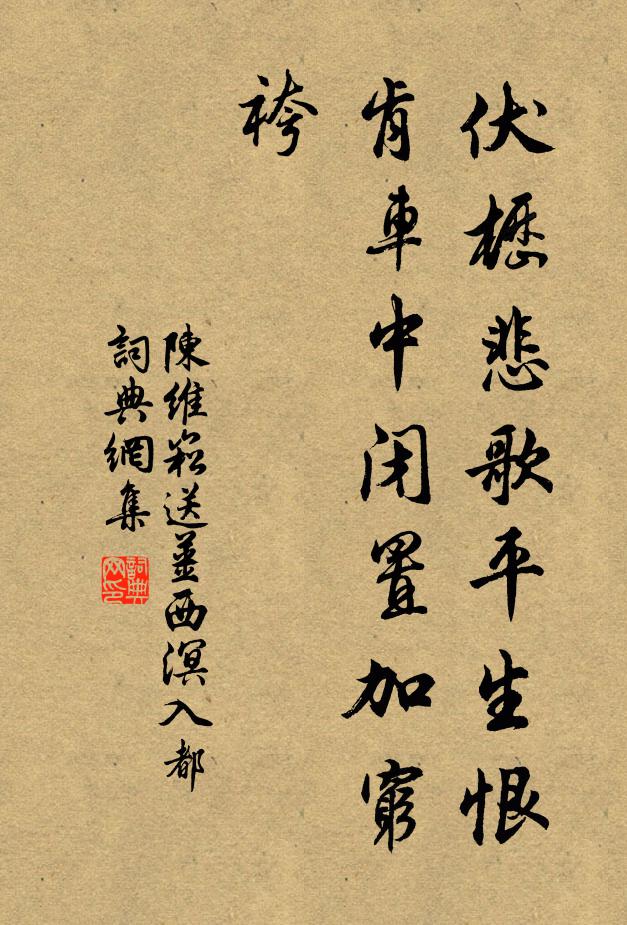 伏櫪悲歌平生恨
肯車中閉置加窮
袴
陳維崧送薑西溟入都
詞典網集
詞典網印